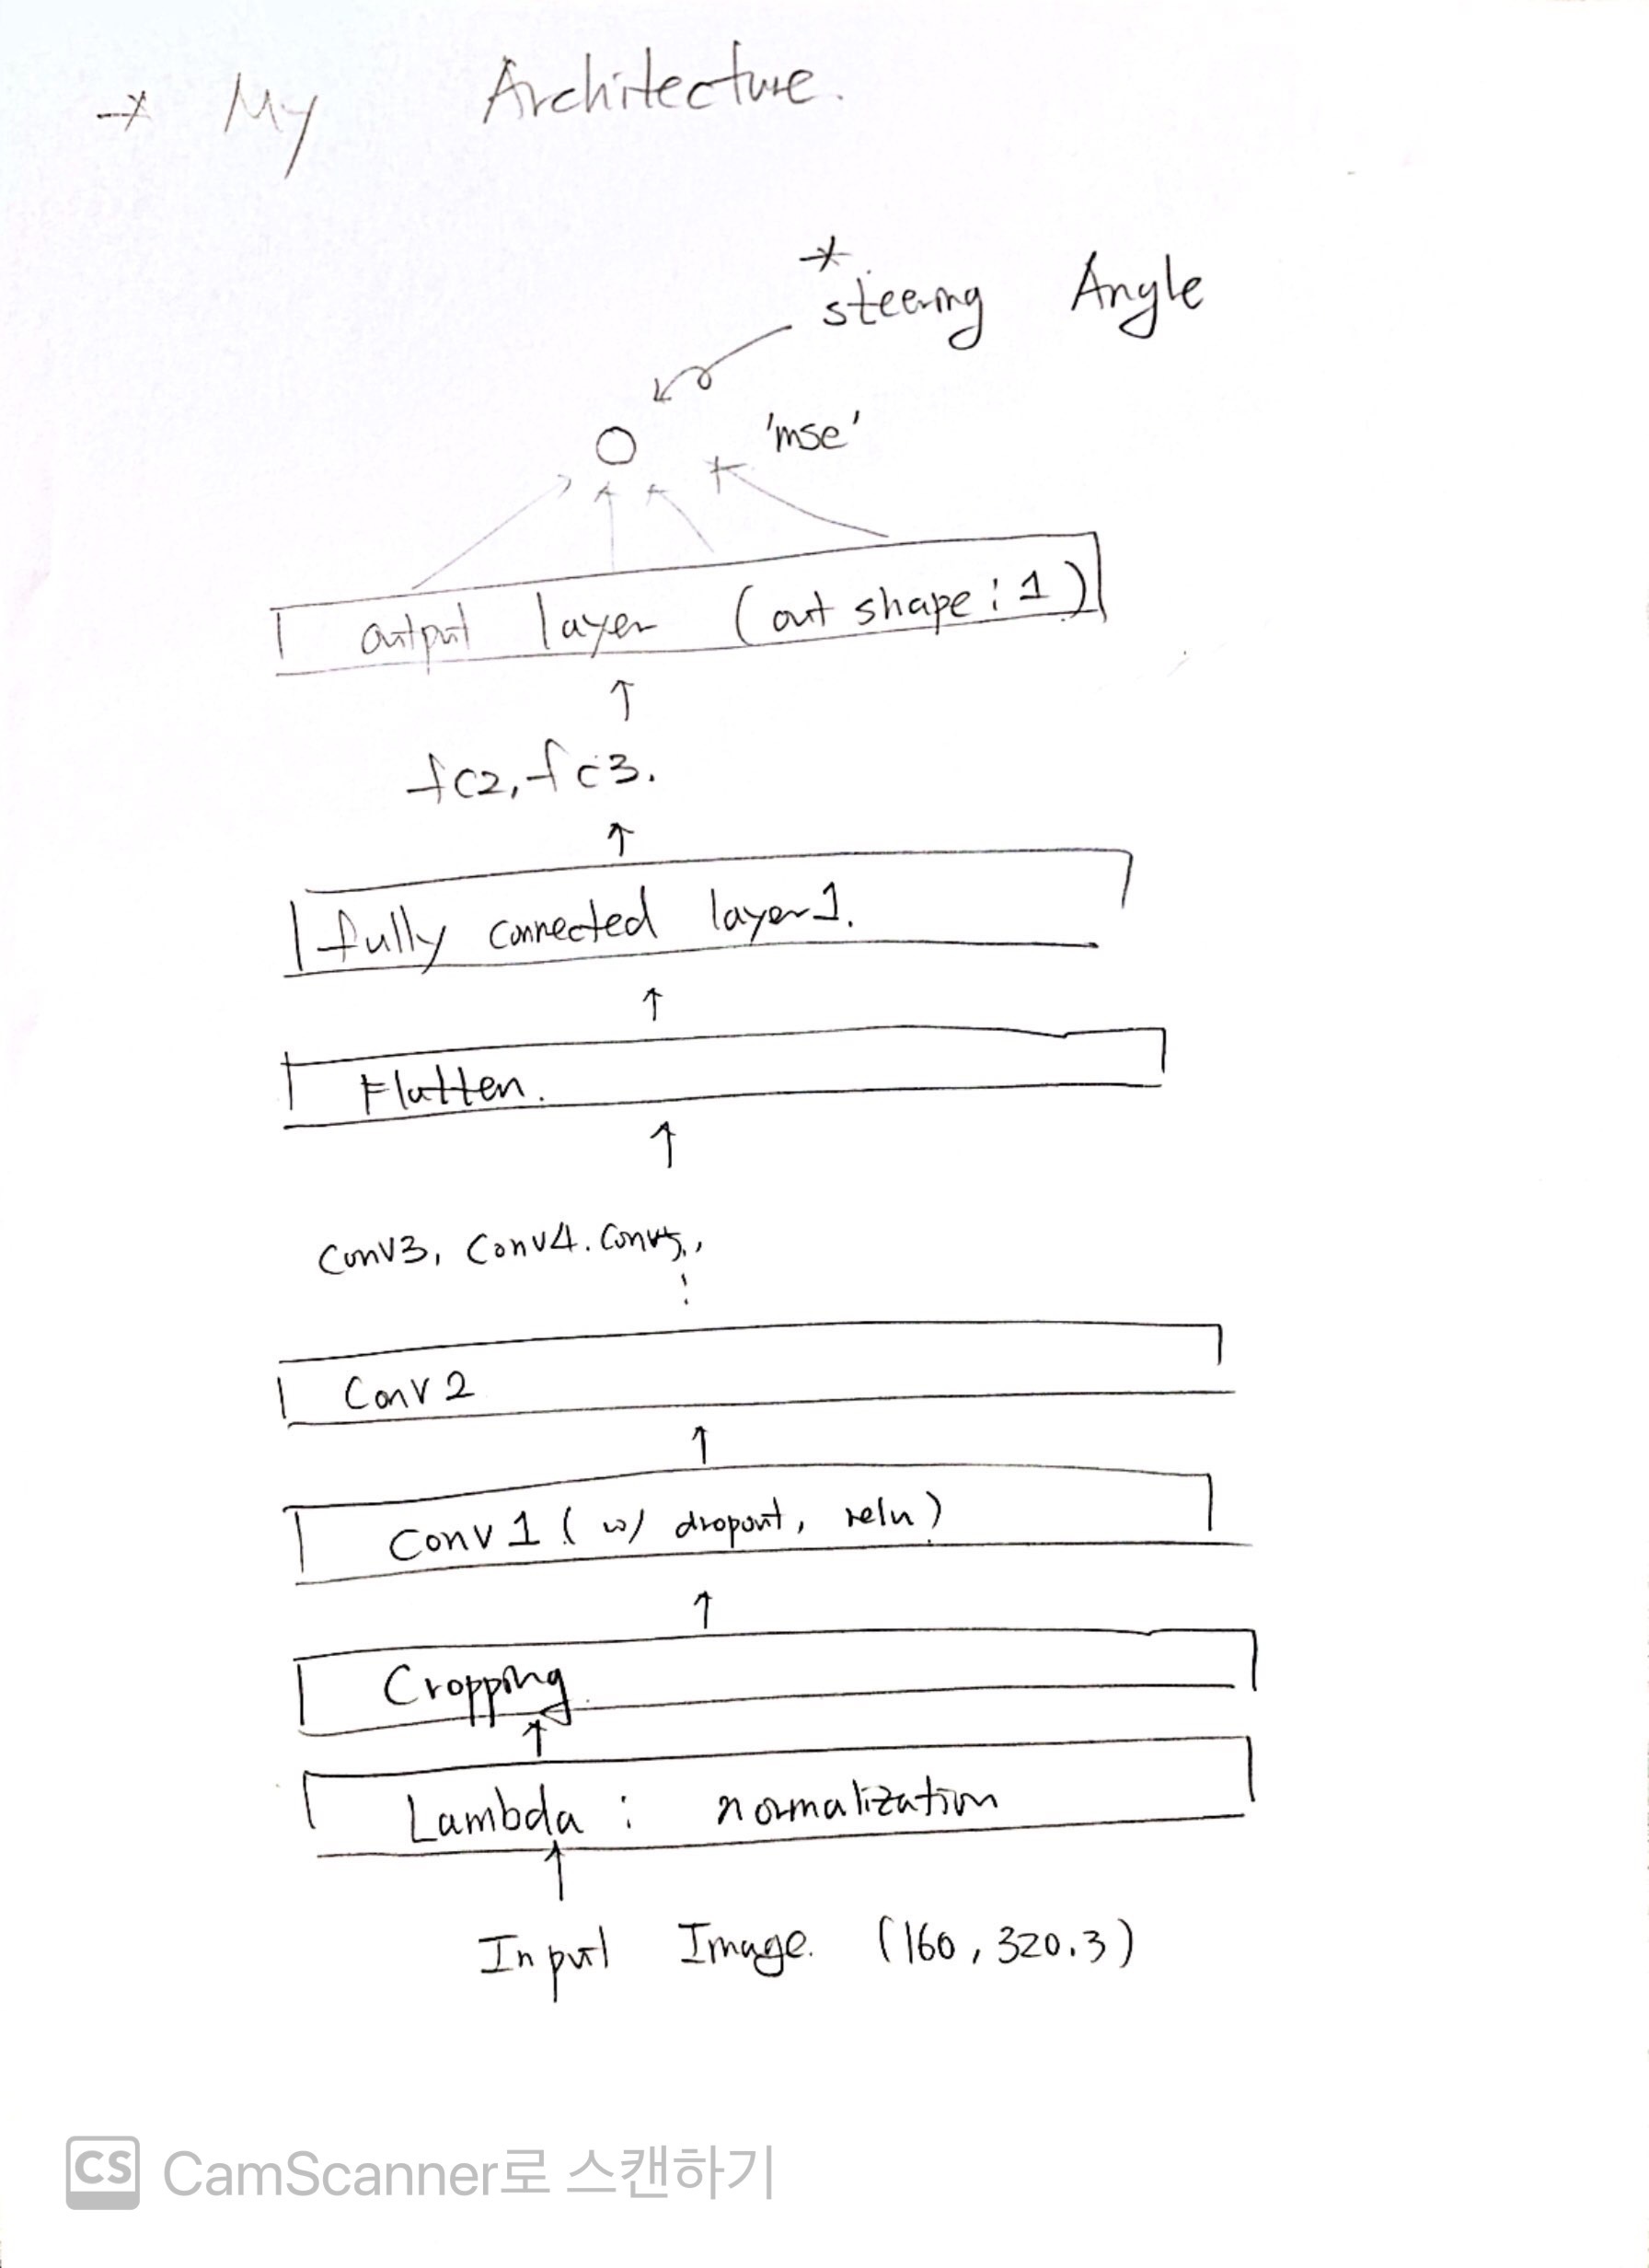 →* My Architecture.
* steering Angle
'mse'
output layer (out shape : 1)
fc2, fc3.
fully connected layer1.
Flatten.
Conv3, Conv4. Conv5.,
Conv2
Conv1 (w/ dropout, relu)
Cropping
Lambda : normalization
Input Image. (160, 320.3)
CS CamScanner로 스캔하기